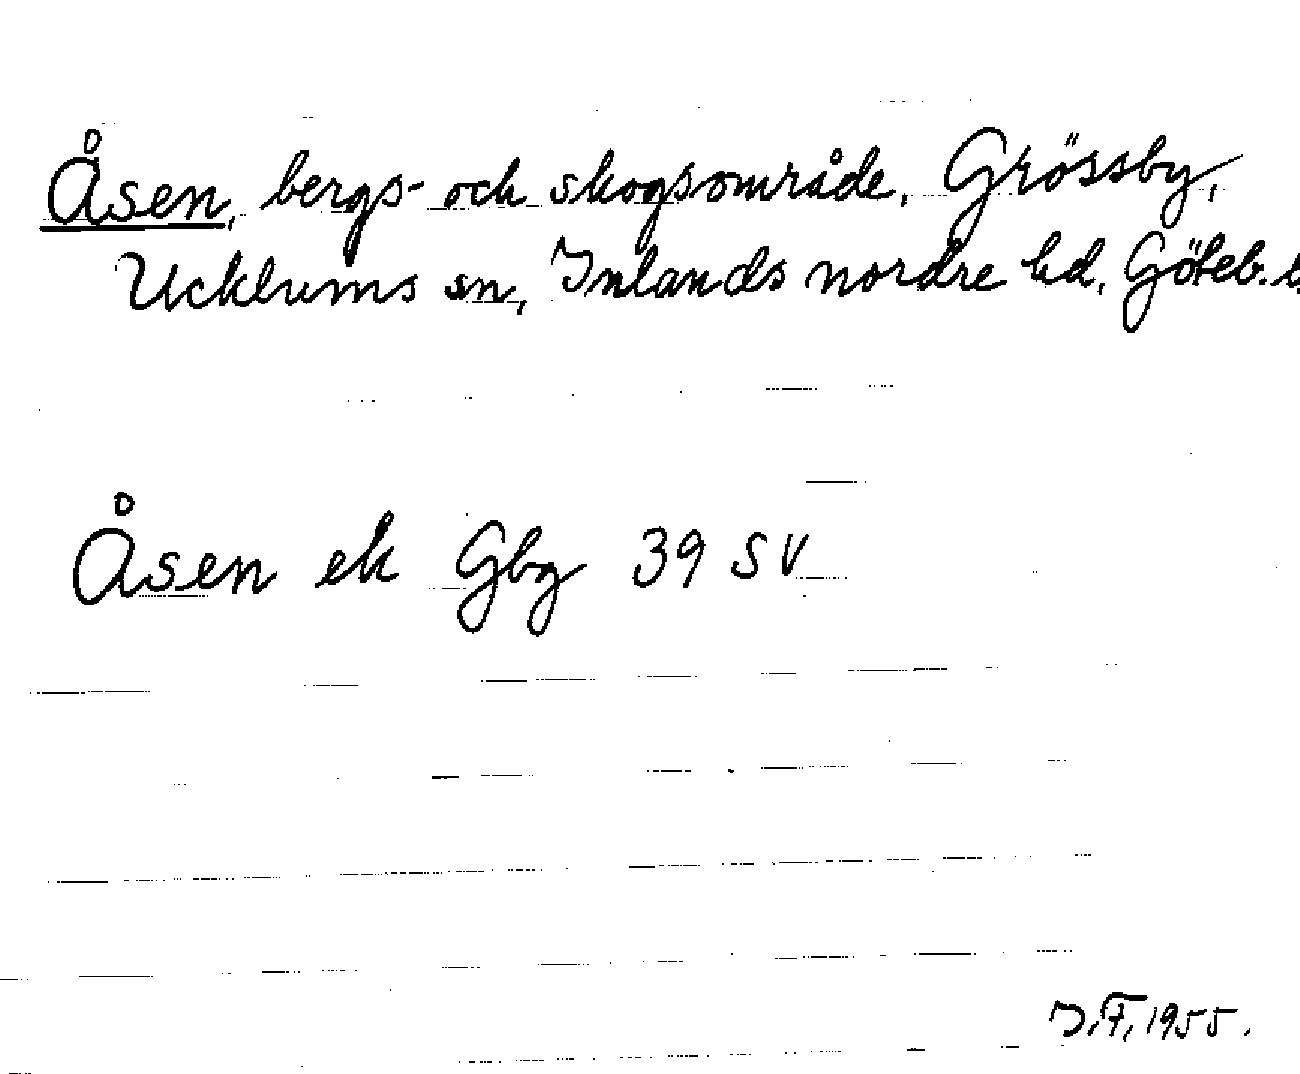 Åsen, bergs- och skogsområde, Grössby,
Ucklums sn, Inlands nordre hd, Göteb.
Åsen ek Gbg 39 SV
J.F. 1955.